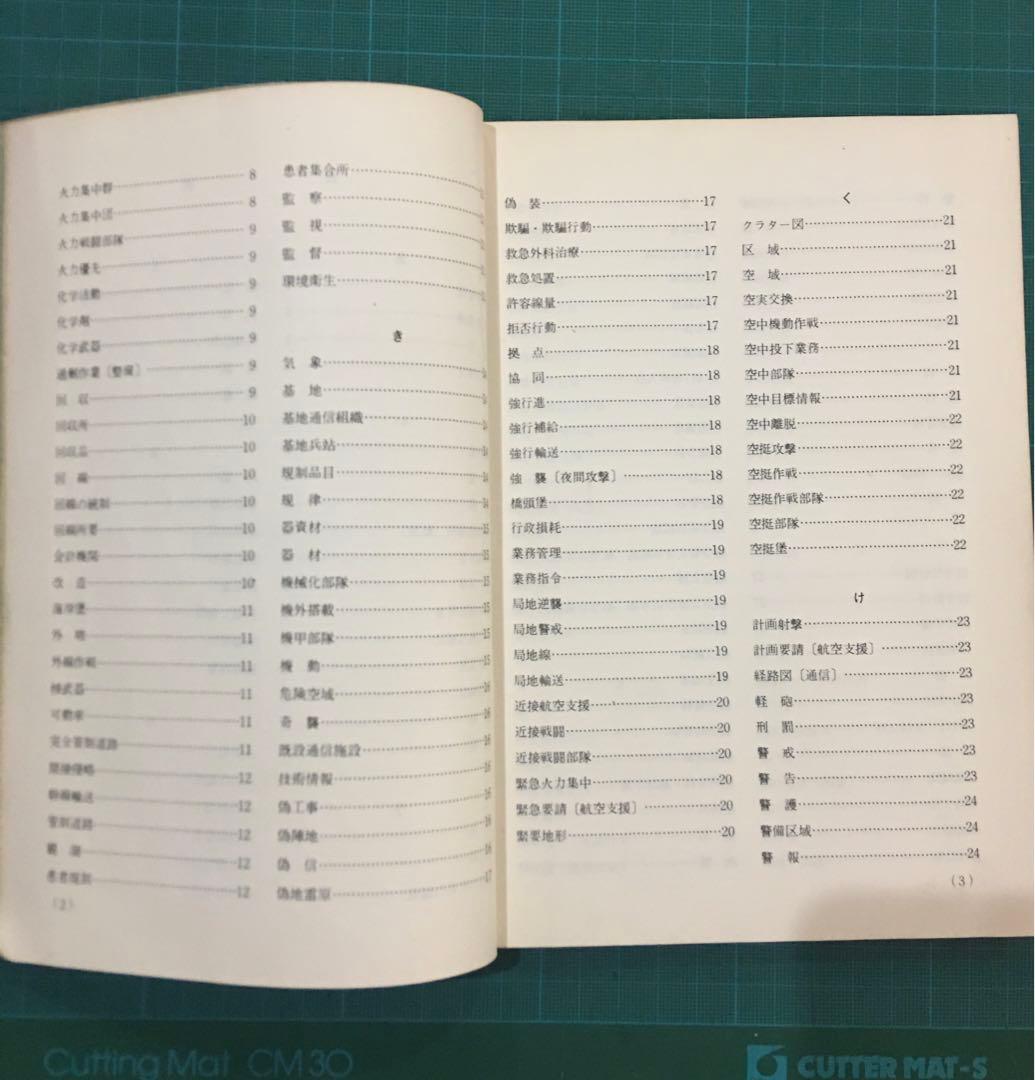 火力集中群 8
火力集中団 8
火力戦闘部隊 9
火力優先 9
化学活動 9
化学剤 9
化学武器 9
過般作業〔整備〕 9
回 収 9
回収所 10
回収品 10
回 線 10
回線の統制 10
回線所要 10
会計機関 10
改 造 10
海岸堡 11
外 哨 11
外線作戦 11
11
可動率 11
完全管制道路 11
間接侵略 12
幹線輸送 12
管制道路 12
観 測 12
患者規制 12
(2)
患者集合所
監 察
監 視
監 督
環境衛生
き
気 象 14
基 地 14
基地通信組織 14
基地兵站 14
規制品目 14
規 律 14
器資材 15
器 材 15
機械化部隊 15
機外搭載 15
機甲部隊 15
機 動 15
危険空域 16
奇 襲 16
既設通信施設 16
技術情報 16
偽工事 16
偽陣地 16
偽 信 16
偽地雷原 17
偽 装 17
欺騙・欺騙行動 17
救急外科治療 17
救急処置 17
許容線量 17
拒否行動 17
拠 点 18
協 同 18
強行進 18
強行補給 18
強行輸送 18
強 襲〔夜間攻撃〕 18
橋頭堡 18
行政損耗 19
業務管理 19
業務指令 19
局地逆襲 19
局地警戒 19
局地線 19
局地輸送 19
近接航空支援 20
近接戦闘 20
近接戦闘部隊 20
緊急火力集中 20
緊急要請〔航空支援〕 20
緊要地形 20
く
クラター図 21
区 域 21
空 域 21
空実交換 21
空中機動作戦 21
空中投下業務 21
空中部隊 21
空中目標情報 21
空中離脱 22
空挺攻撃 22
空挺作戦 22
空挺作戦部隊 22
空挺部隊 22
空挺堡 22
け
計画射撃 23
計画要請〔航空支援〕 23
経路図〔通信〕 23
軽 砲 23
刑 罰 23
警 戒 23
警 告 23
警 護 24
警備区域 24
警 報 24
(3)
Cutting Mat CM30
CUTTER MAT-S